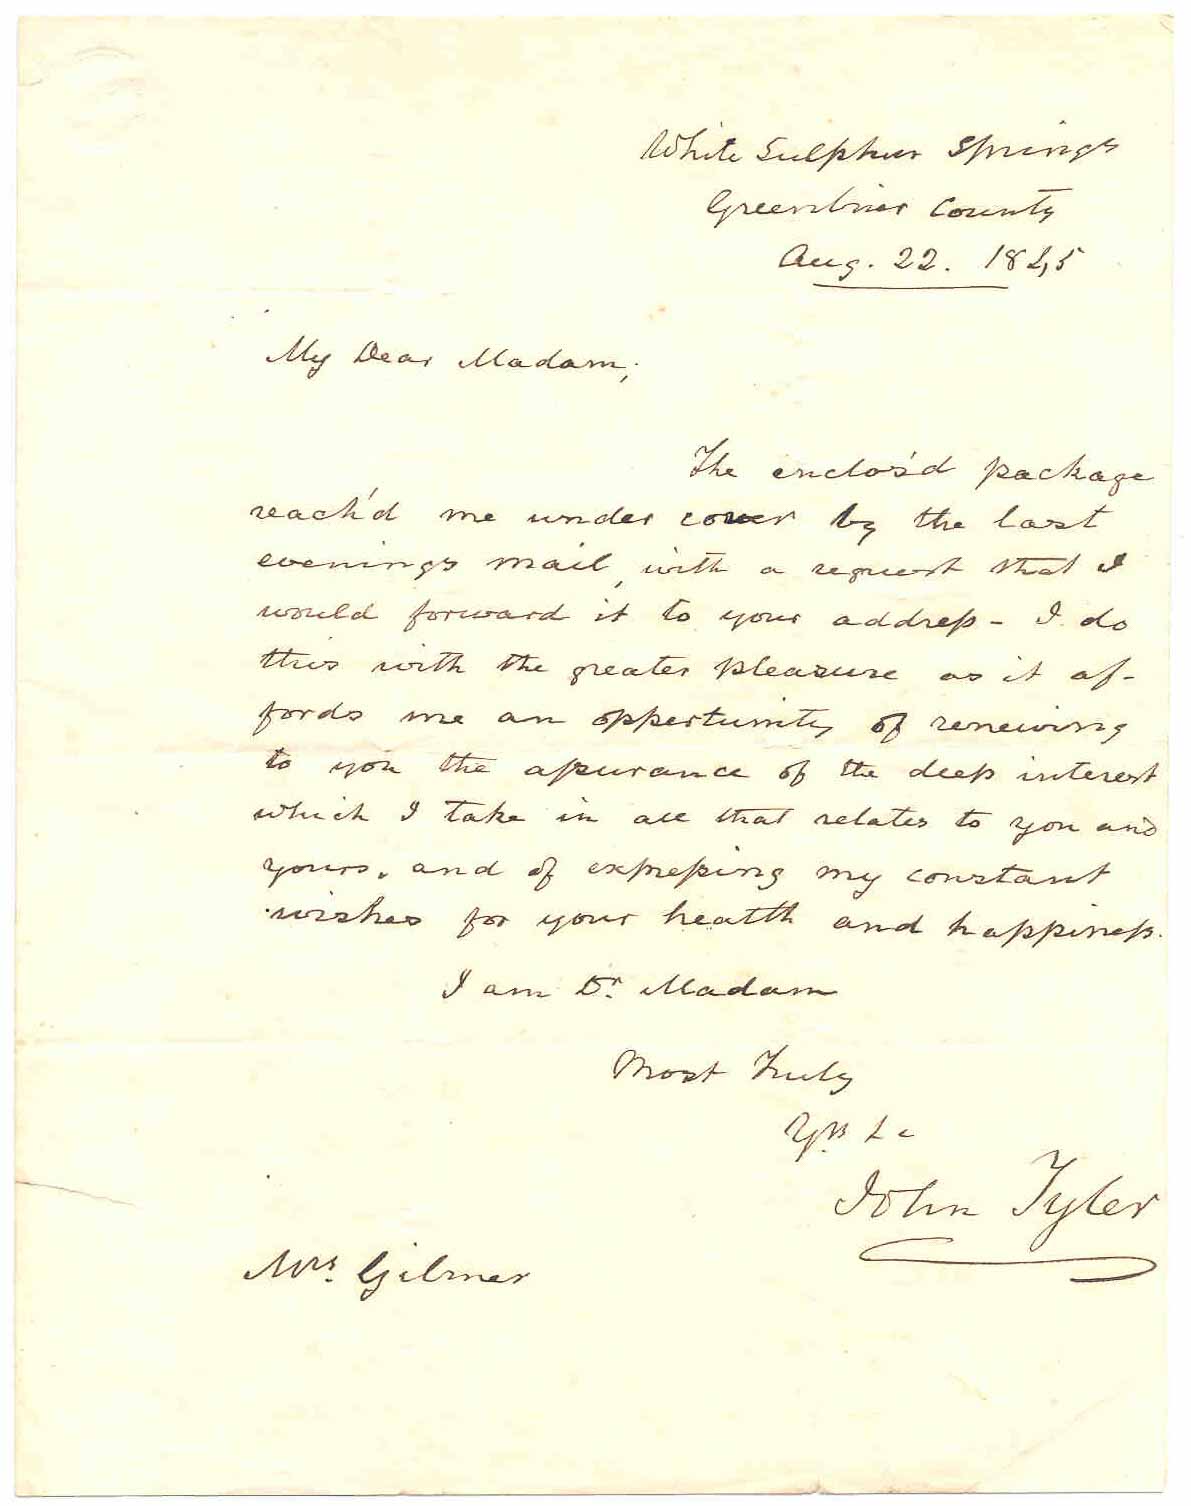 White Sulphur Springs
Greenbrier County
Aug. 22. 1845
My Dear Madam;
The enclos'd package
reach'd me under cover by the last
evenings mail, with a request that I
would forward it to your address - I do
this with the greater pleasure as it af-
fords me an oppertunity of renewing
to you the assurance of the deep interest
which I take in all that relates to you and
yours, and of expressing my constant
wishes for your health and happiness.
I am Dr. Madam
Most Truly
Yrs &c
John Tyler
Mrs. Gilmer